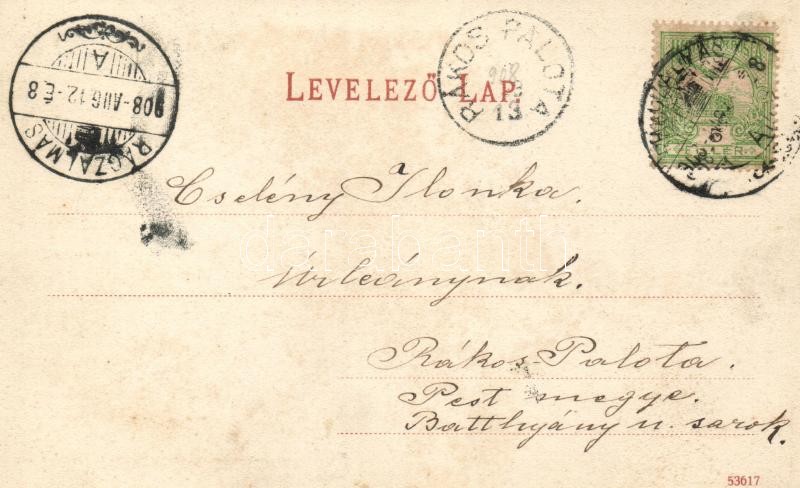 LEVELEZŐ LAP.
RÁKOS PALOTA
908
13
908 - AUG. 12 - É. 8
A
RÁCZALMÁS
Cselény Ilonka.
Úrleánynak.
Rákos-Palota.
Pest megye.
Batthyány u. sarok.
darabanth
53617